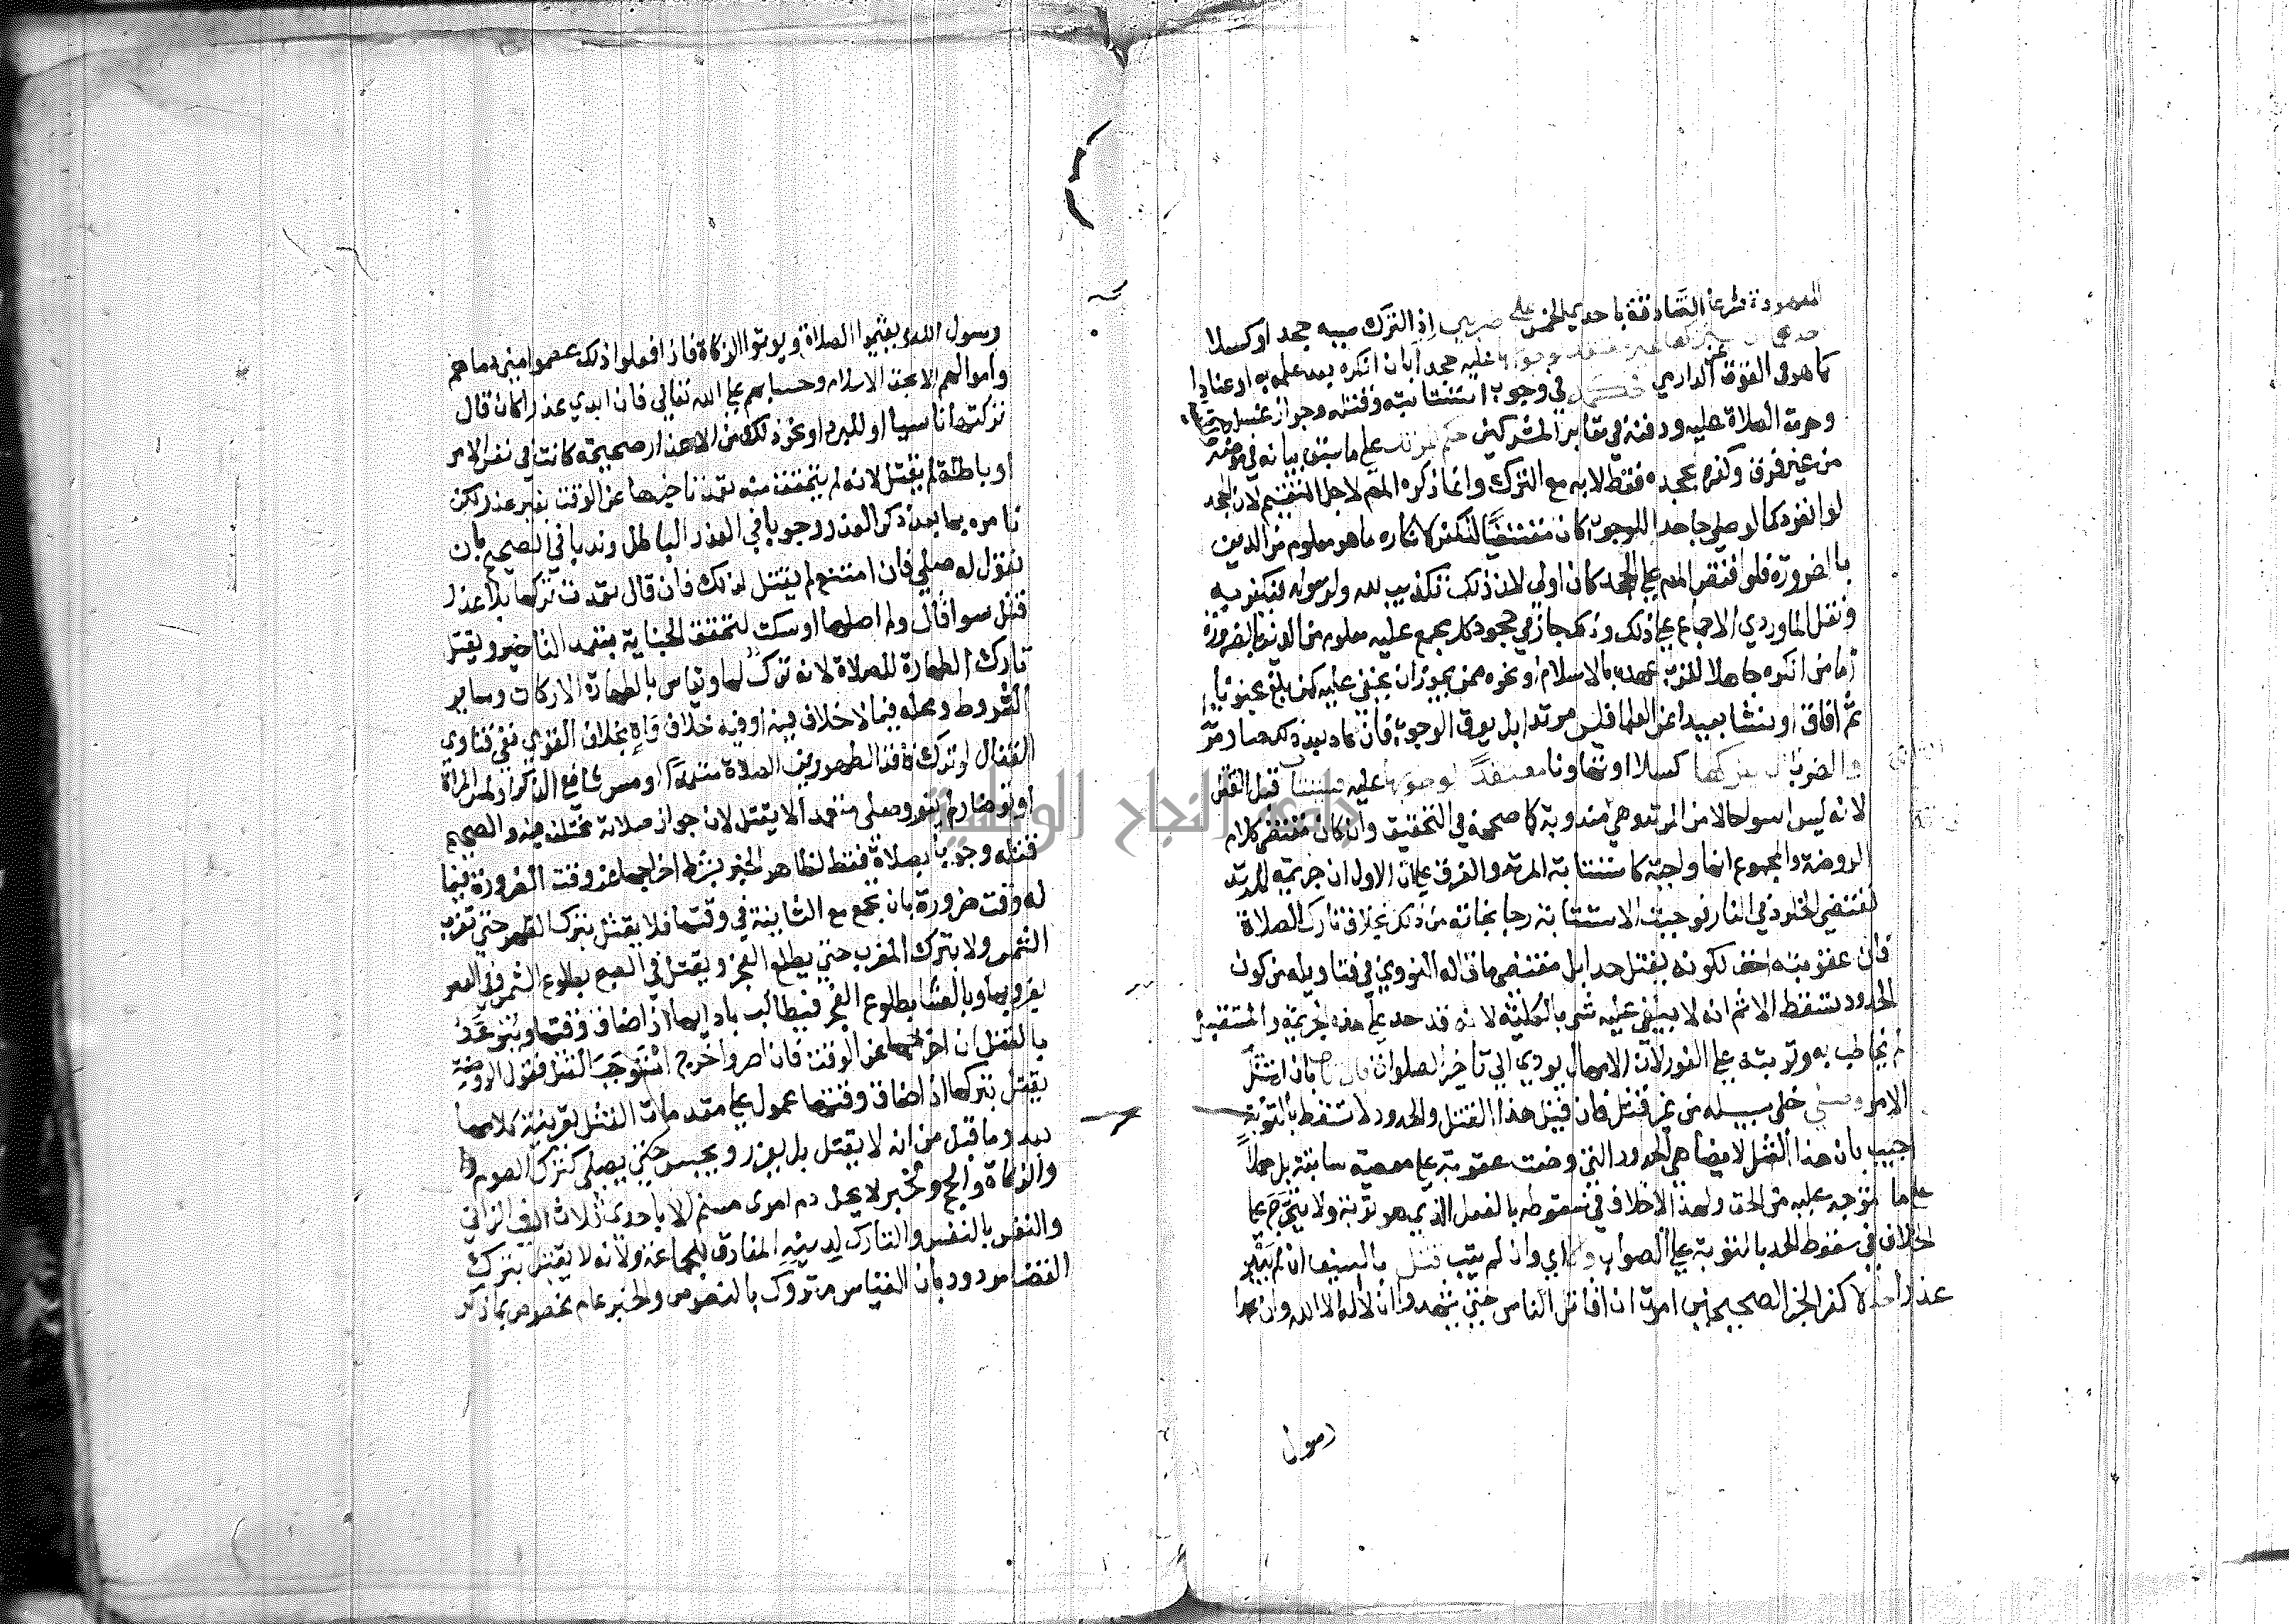 المعهودة شرعا الصادقة باحدي الخمس على ضربين اذ الترك سببه جحد او كسلا
وجوبها عليه جحدا بان انكره بعد علمه به او عنادا
كما هو في القوت عن الداري في وجوب استتابته وقتله وجواز غسل
وحرمة الصلاة عليه ودفنه في مقابر المشركين حكم المرتد على ما سبق بيانه في موضعه
من غير فرق وكفره بجحده فقط لا به مع الترك وانما ذكره المص لاجل التقسيم لان الجحد
لو انفرد كما لو صلى جاحدا للوجوب كان مقتضيا للكفر لانكاره ما هو معلوم من الدين
بالضرورة فلو اقتصر المص على الجحد كان اولى لان ذلك تكذيب لله ولرسوله فيكفر به
ونقل الماوردي الاجماع على ذلك وذلك جاز في جحود كل مجمع عليه معلوم من الدين بالضرورة
اما من انكره جاهلا لقرب عهده بالاسلام او نحوه ممن يجوز ان يخفى عليه كمن بلغ مجنونا
ثم افاق او نشا بعيدا عن العلما فليس مرتدا بل يعرف الوجوب فان عاد بعد ذلك صار مرتدا
والضرب ان يتركها كسلا او تهاونا معتقدا لوجوبها عليه فيستتاب قبل القتل
لانه ليس اسوا حالا من المرتد وهي مندوبة كما صححه في التحقيق وان كان مقتضى كلام
الروضة والمجموع انها واجبة كاستتابة المرتد والفرق على الاول ان جريمة المرتد
تقتضي الخلود في النار فوجبت الاستتابة رجا نجاته من ذلك بخلاف تارك الصلاة
فان عقوبته اخف لكونه يقتل حدا بل مقتضى ما قاله النووي في فتاويه من كون
الحدود تسقط الاثم انه لا يبقى عليه شي بالكلية لانه قد حد على هذه الجريمة والمستقبل
لم يخاطب به وتوبته على الفور لان الامهال يودي الى تاخير الصلوات فان تاب بان امتثل
الامر وصلى خلى سبيله من غير قتل فان قيل هذا القتل والحدود لا تسقط بالتوبة
اجيب بان هذا القتل لا يضاهي الحدود التي وضعت عقوبة على معصية سابقة بل حملا
على ما توجه عليه من الحق ولهذا لا خلاف في سقوطه بالفعل الذي هو توبة ولا يتخرج على
الخلاف في سقوط الحد بالتوبة على الصواب والا اي وان لم يتب قتل بالسيف ان لم يبد
عذرا حدا لا كفرا لخبر الصحيحين امرت ان اقاتل الناس حتى يشهدوا ان لا اله الا الله وان محمدا
رسول
رسول الله ويقيموا الصلاة ويوتوا الزكاة فاذا فعلوا ذلك عصموا مني دماهم
واموالهم الا بحق الاسلام وحسابهم على الله تعالى فان ابدي عذرا كان قال
تركتها ناسيا او للبرد او نحو ذلك من الاعذار صحيحة كانت في نفس الامر
او باطلة لم يقتل لانه لم يتحقق منه تعمد تاخيرها عن الوقت بغير عذر لكن
نامره بها بعد ذكر العذر وجوبا في العذر الباطل وندبا في الصحيح بان
نقول له صلي فان امتنع لم يقتل لذلك فان قال تعمدت تركها بلا عذر
قتل سوا قال ولم اصلها او سكت لتحقق الجناية بتعمد التاخير ويقتل
تارك الطهارة للصلاة لانه ترك لها وتقاس بالطهارة الاركان وساير
الشروط ومحله فيما لا خلاف فيه او فيه خلاف واه بخلاف القوي ففي فتاوي
القفال لو ترك فاقد الطهورين الصلاة متعمدا او مس شافعي الذكر او لمس المراة
او توضا ولم ينو وصلى متعمدا لا يقتل لان جواز صلاته مختلف فيه والصحيح
قتله وجوبا بصلاة فقط لظاهر الخبر بشرط اخراجها عن وقت الضرورة فيما
له وقت ضرورة بان تجمع مع الثانية في وقتها فلا يقتل بترك الظهر حتى تغرب
الشمس ولا بترك المغرب حتى يطلع الفجر ويقتل في الصبح بطلوع الشمس وفي العصر
بغروبها وبالعشا بطلوع الفجر فيطالب بادايها اذا ضاق وقتها ويتوعد
بالقتل ان اخرجها عن الوقت فان اصر واخرج استوجب القتل فقول الروضة
يقتل بتركها اذا ضاق وقتها محمول على مقدمات القتل بقرينة كلامها
بعد وما قيل من انه لا يقتل بل يعزر ويحبس حتى يصلي كترك الصوم
والزكاة والحج ولخبر لا يحل دم امرى مسلم الا باحدى ثلاث الثيب الزاني
والنفس بالنفس والتارك لدينه المفارق للجماعة ولانه لا يقتل بترك
القضا مردود بان القياس متروك بالنصوص والخبر عام مخصوص بما ذكر